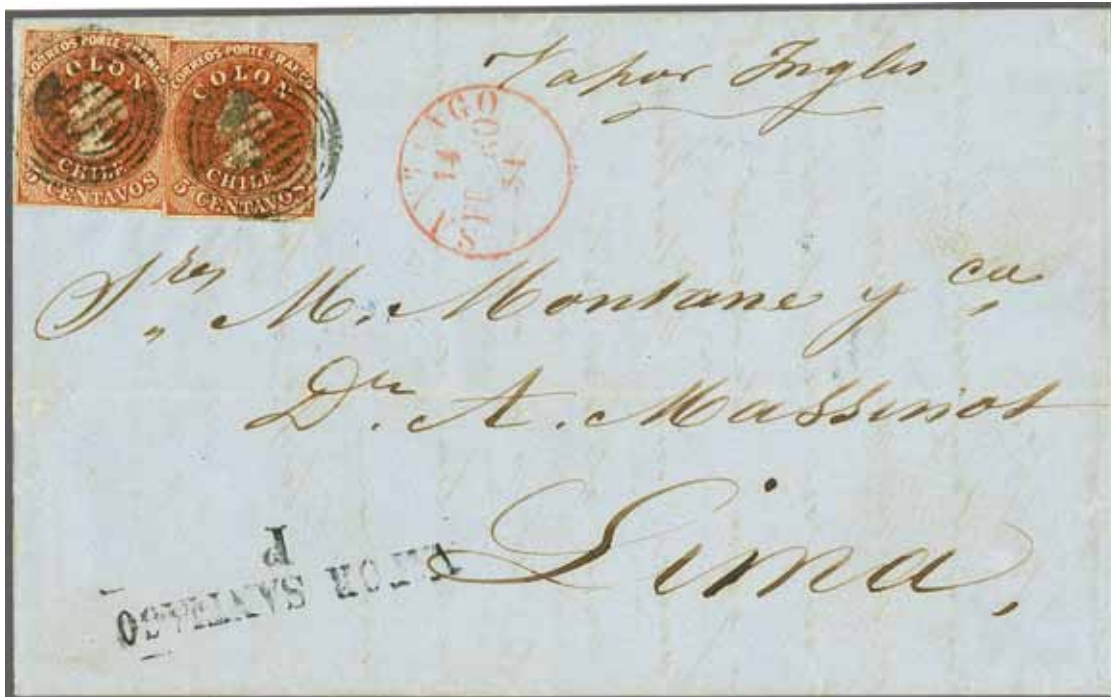 CORREOS PORTE FRANCO
COLON
CHILE
5 CENTAVOS
CORREOS PORTE FRANCO
COLON
CHILE
5 CENTAVOS
Vapor Ingles
SANTIAGO
14
Sres M. Montane y ca
Dn A. Massinot
Lima,
P
SANTIAGO